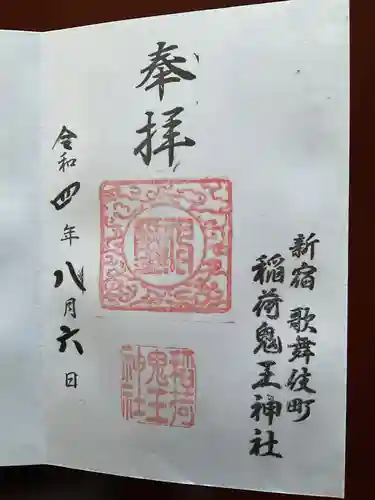 奉拝
新宿 歌舞伎町
稲荷鬼王神社
稲荷
鬼王
神社
令和四年八月六日